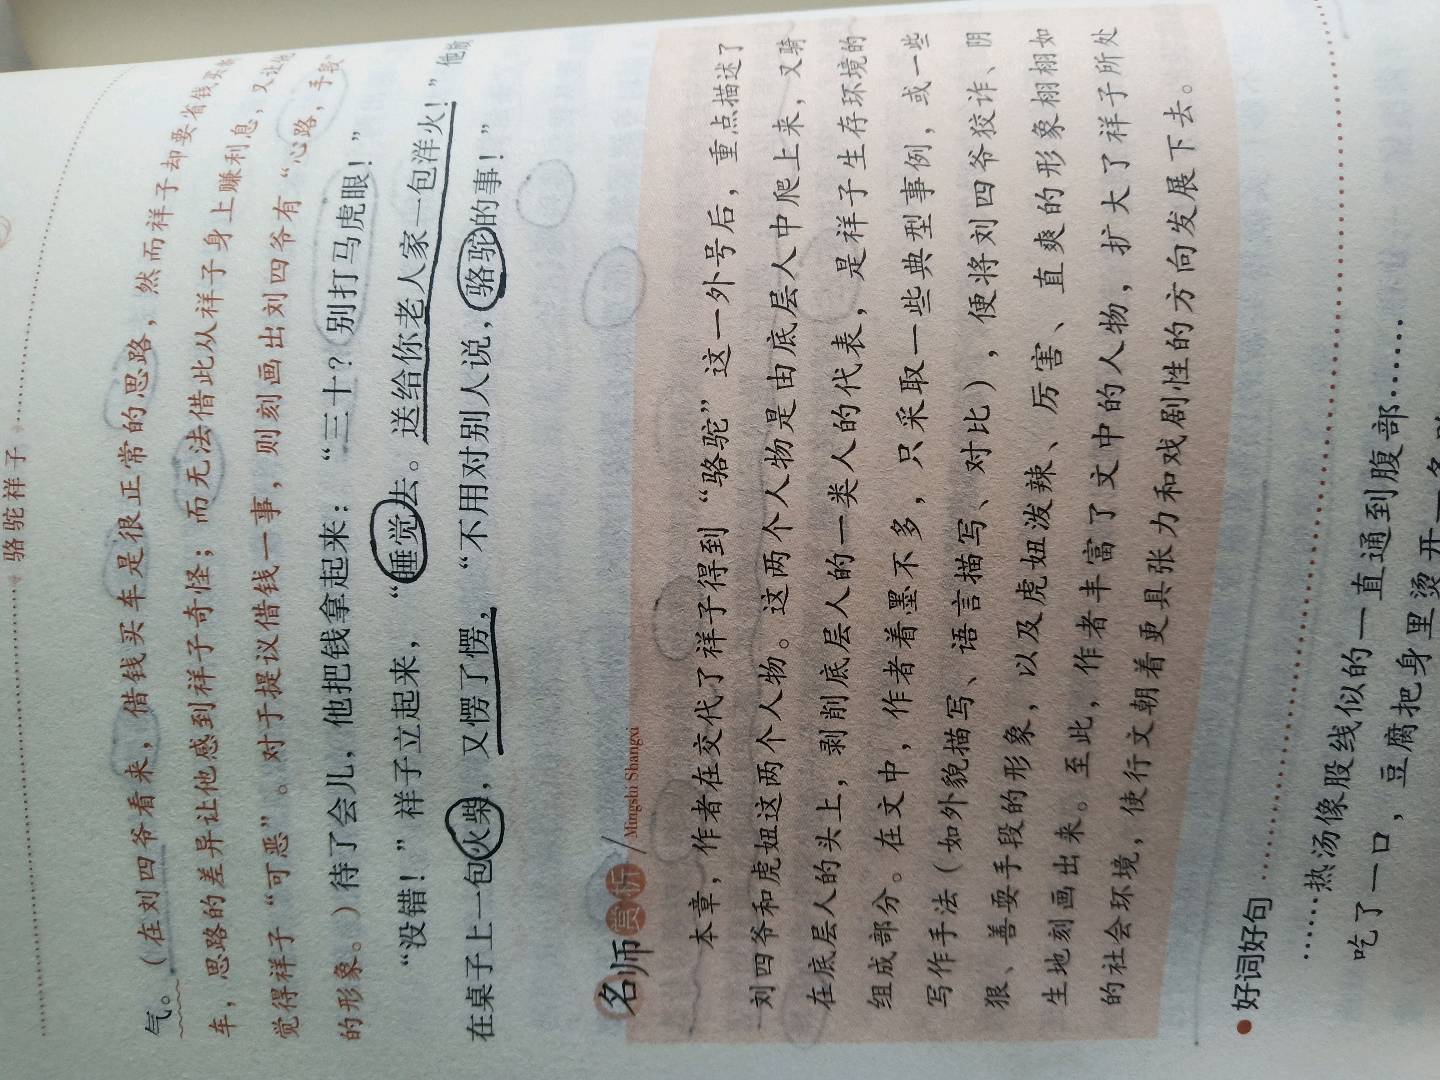 骆驼祥子
气。(在刘四爷看来，借钱买车是很正常的思路，然而祥子却要省钱买
车，思路的差异让他感到祥子奇怪；而无法借此从祥子身上赚利息，又让他
觉得祥子“可恶”。对于提议借钱一事，则刻画出刘四爷有“心路，手段”
的形象。)待了会儿，他把钱拿起来：“三十？别打马虎眼！”
“没错！”祥子立起来，“睡觉去。送给你老人家一包洋火！”他放
在桌子上一包火柴，又愣了愣，“不用对别人说，骆驼的事！”
名师赏析
Mingshi Shangxi
本章，作者在交代了祥子得到“骆驼”这一外号后，重点描述了
刘四爷和虎妞这两个人物。这两个人物是由底层人中爬上来，又骑
在底层人的头上，剥削底层人的一类人的代表，是祥子生存环境的
组成部分。在文中，作者着墨不多，只采取一些典型事例，或一些
写作手法（如外貌描写、语言描写、对比），便将刘四爷狡诈、阴
狠、善耍手段的形象，以及虎妞泼辣、厉害、直爽的形象栩栩如
生地刻画出来。至此，作者丰富了文中的人物，扩大了祥子所处
的社会环境，使行文朝着更具张力和戏剧性的方向发展下去。
●好词好句
……热汤像股线似的一直通到腹部……
吃了一口，豆腐把身里烫开一条